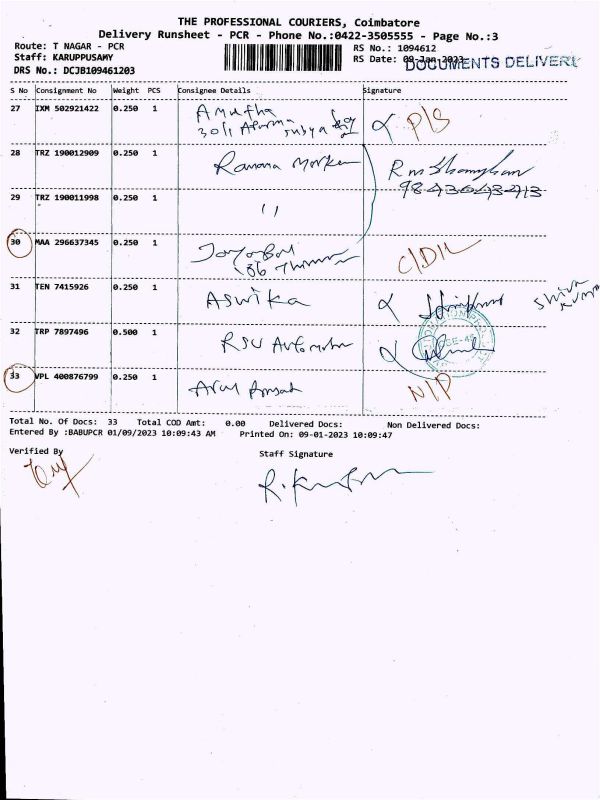 THE PROFESSIONAL COURIERS, Coimbatore
Delivery Runsheet - PCR - Phone No.:0422-3505555 - Page No.:3
Route: T NAGAR - PCR
RS No.: 1094612
Staff: KARUPPUSAMY
RS Date: 09-Jan-2023
DOCUMENTS DELIVERY
DRS No.: DCJB109461203
S No Consignment No Weight PCS Consignee Details Signature
27 IXM 502921422 0.250 1 Amutha P/S
28 TRZ 190012909 0.250 1 Ramana
9843643413
29 TRZ 190011998 0.250 1 ''
30 MAA 296637345 0.250 1 C/D/L
31 TEN 7415926 0.250 1 Aswika Shiva Kumar
32 TRP 7897496 0.500 1 RSU
33 VPL 400876799 0.250 1 Arul N/P
Total No. Of Docs: 33 Total COD Amt: 0.00 Delivered Docs: Non Delivered Docs:
Entered By :BABUPCR 01/09/2023 10:09:43 AM Printed On: 09-01-2023 10:09:47
Verified By Staff Signature